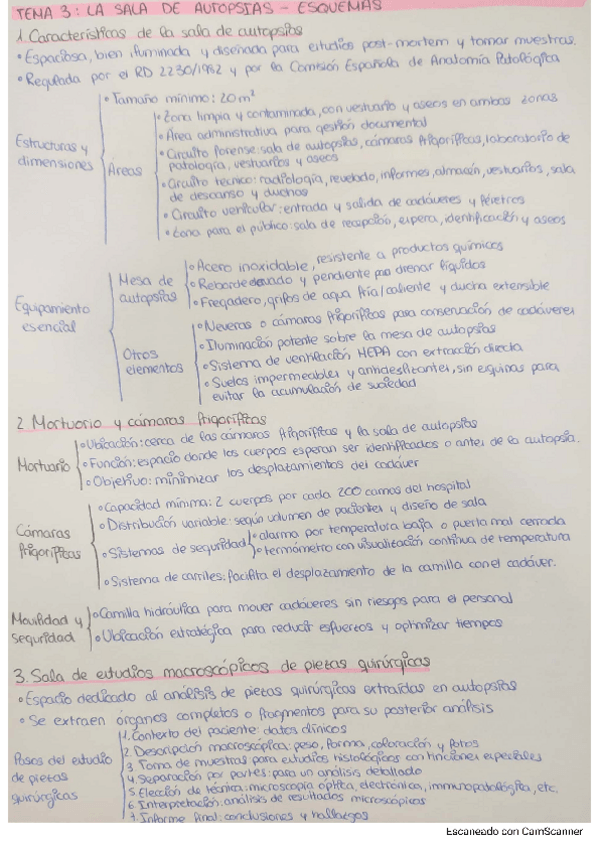 TEMA 3: LA SALA DE AUTOPSIAS - ESQUEMAS
1. Características de la sala de autopsias
• Espaciosa, bien iluminada y diseñada para estudios post-mortem y tomar muestras.
• Regulada por el RD 2230/1982 y por la Comisión Española de Anatomía Patológica
Estructuras y dimensiones
• Tamaño mínimo: 20m²
Áreas
• Zona limpia y contaminada, con vestuario y aseos en ambas zonas
• Área administrativa para gestión documental
• Circuito forense: sala de autopsias, cámaras frigoríficas, laboratorio de
patología, vestuarios y aseos
• Circuito técnico: radiología, revelado, informes, almacén, vestuarios, sala
de descanso y duchas
• Circuito vehicular: entrada y salida de cadáveres y féretros
• Zona para el público: sala de recepción, espera, identificación y aseos
Equipamiento esencial
Mesa de autopsias
• Acero inoxidable, resistente a productos químicos
• Reborde elevado y pendiente para drenar líquidos
• Fregadero, grifos de agua fría/caliente y ducha extensible
Otros elementos
• Neveras o cámaras frigoríficas para conservación de cadáveres
• Iluminación potente sobre la mesa de autopsias
• Sistema de ventilación HEPA con extracción directa
• Suelos impermeables y antideslizantes, sin esquinas para
evitar la acumulación de suciedad
2. Mortuorio y cámaras frigoríficas
Mortuario
• Ubicación: cerca de las cámaras frigoríficas y la sala de autopsias
• Función: espacio donde los cuerpos esperan ser identificados o antes de la autopsia.
• Objetivo: minimizar los desplazamientos del cadáver
Cámaras frigoríficas
• Capacidad mínima: 2 cuerpos por cada 200 camas del hospital
• Distribución variable: según volumen de pacientes y diseño de sala
• Sistemas de seguridad
• alarma por temperatura baja o puerta mal cerrada
• termómetro con visualización continua de temperatura
• Sistema de carriles: facilita el desplazamiento de la camilla con el cadáver.
Movilidad y seguridad
• Camilla hidráulica para mover cadáveres sin riesgos para el personal
• Ubicación estratégica para reducir esfuerzos y optimizar tiempos
3. Sala de estudios macroscópicos de piezas quirúrgicas
• Espacio dedicado al análisis de piezas quirúrgicas extraídas en autopsias
• Se extraen órganos completos o fragmentos para su posterior análisis
Pasos del estudio de piezas quirúrgicas
1. Contexto del paciente: datos clínicos
2. Descripción macroscópica: peso, forma, coloración y fotos
3. Toma de muestras: para estudios histológicos con tinciones especiales
4. Separación por partes: para un análisis detallado
5. Elección de técnica: microscopía óptica, electrónica, inmunopatológica, etc.
6. Interpretación: análisis de resultados microscópicos
7. Informe final: conclusiones y hallazgos
Escaneado con CamScanner